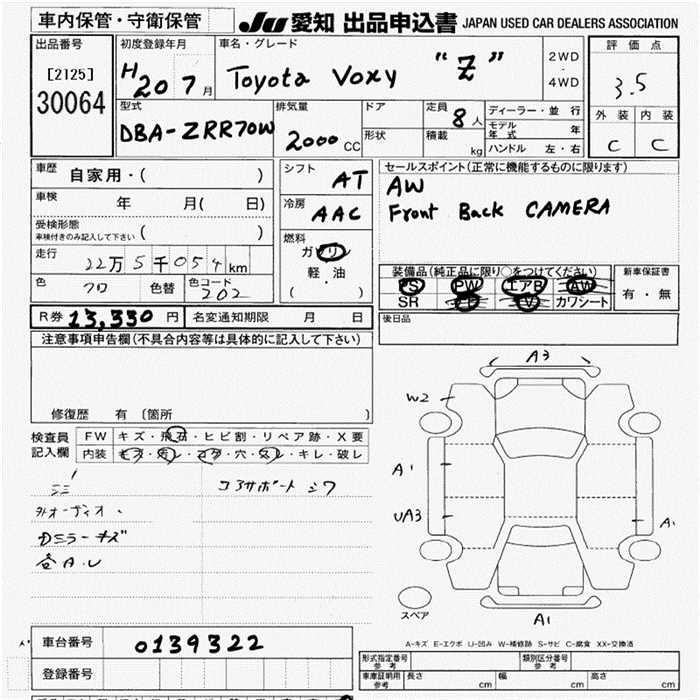 車内保管・守衛保管
JU 愛知 出品申込書 JAPAN USED CAR DEALERS ASSOCIATION
出品番号
[2125]
30064
初度登録年月
H20 7月
車名・グレード
Toyota Voxy "Z"
2WD
・
4WD
評価点
3.5
外装 内装
C C
型式
DBA-ZRR70W
排気量
2000 CC
ドア
形状
定員 8人
積載 kg
ディーラー・並行
モデル年式 年
ハンドル 左・右
車歴
自家用・( )
車検 年 月( 日)
受検形態
車検付きのみ記入して下さい ( )
走行
22万5千054km
色 クロ 色替 色コード 202
シフト AT
冷房 AAC
燃料
ガソリン
軽・油
( )
セールスポイント(正常に機能するものに限ります)
AW
Front Back CAMERA
装備品(純正品に限り○をつけてください)
PS PW エアB AW
SR TV カワシート
新車保証書
有・無
R券 13,330 円 名変通知期限 月 日
後日品
注意事項申告欄(不具合内容等は具体的に記入して下さい)
修復歴 有 〔箇所 〕
検査員記入欄
FW キズ・飛石・ヒビ割・リペア跡・X要
内装 キズ・汚レ・コゲ・穴・スレ・キレ・破レ
コアサポート シワ
外オーディオ
Dミラーキズ
各A.U
A3
W2
A1
UA3
A1
A1
スペア
A-キズ E-エクボ U-凹み W-補修跡 S-サビ C-腐食 XX-交換済
車台番号 0139322
登録番号
形式指定番号 参考
類別区分番号 参考
車庫証明用 参考 長さ cm 幅 cm 高さ cm